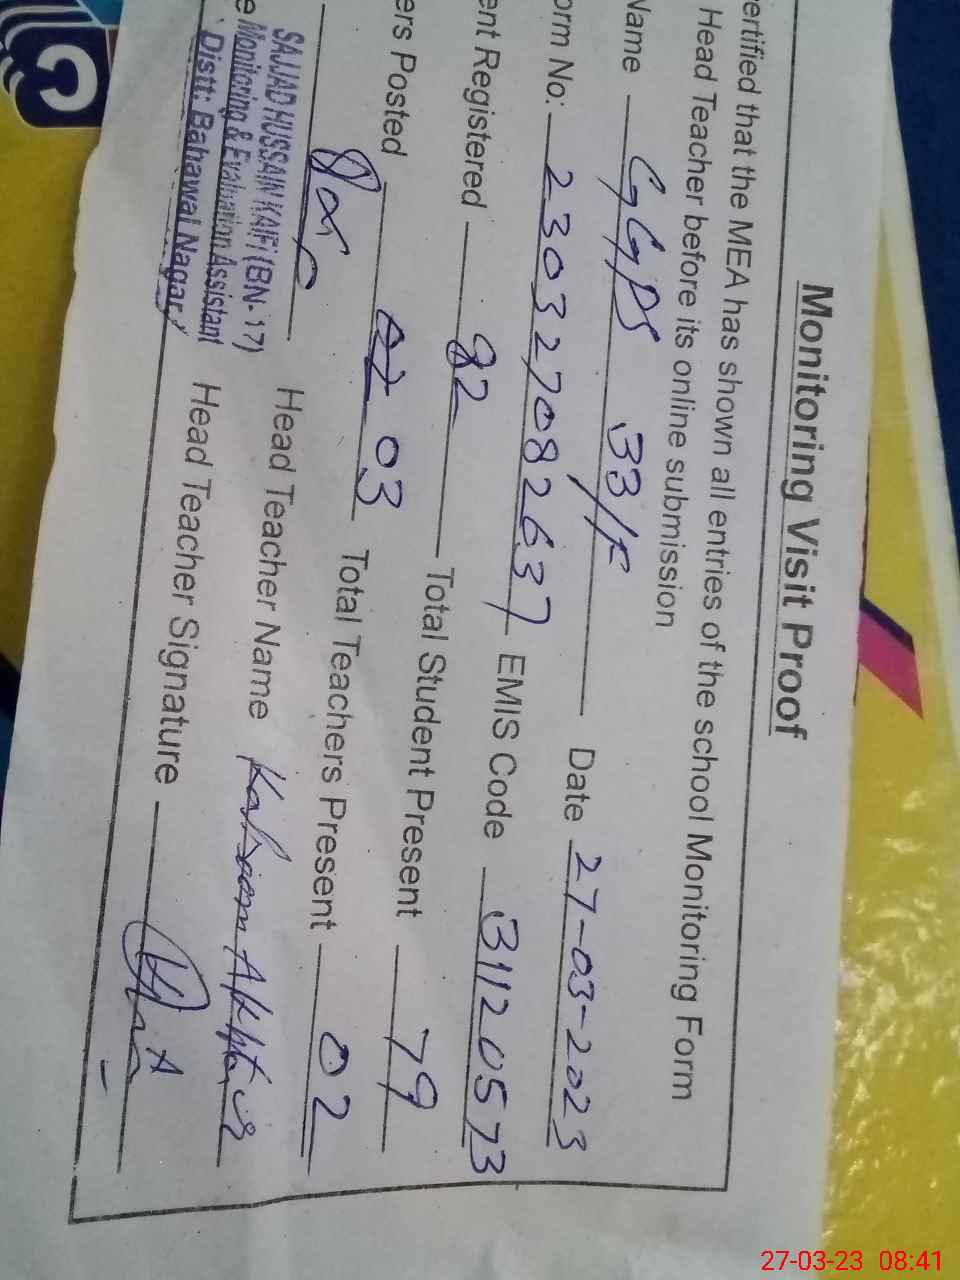 Monitoring Visit Proof
ertified that the MEA has shown all entries of the school Monitoring Form
Head Teacher before its online submission
Name GGPS 33/F Date 27-03-2023
orm No: 230327082637 EMIS Code 31120573
ent Registered 82 Total Student Present 79
ers Posted 03 Total Teachers Present 02
Head Teacher Name Kalsoom Akhtar
SAJJAD HUSSAIN KAIFI (BN-17)
e Monitoring & Evaluation Assistant
Distt: Bahawal Nagar
Head Teacher Signature
27-03-23 08:41